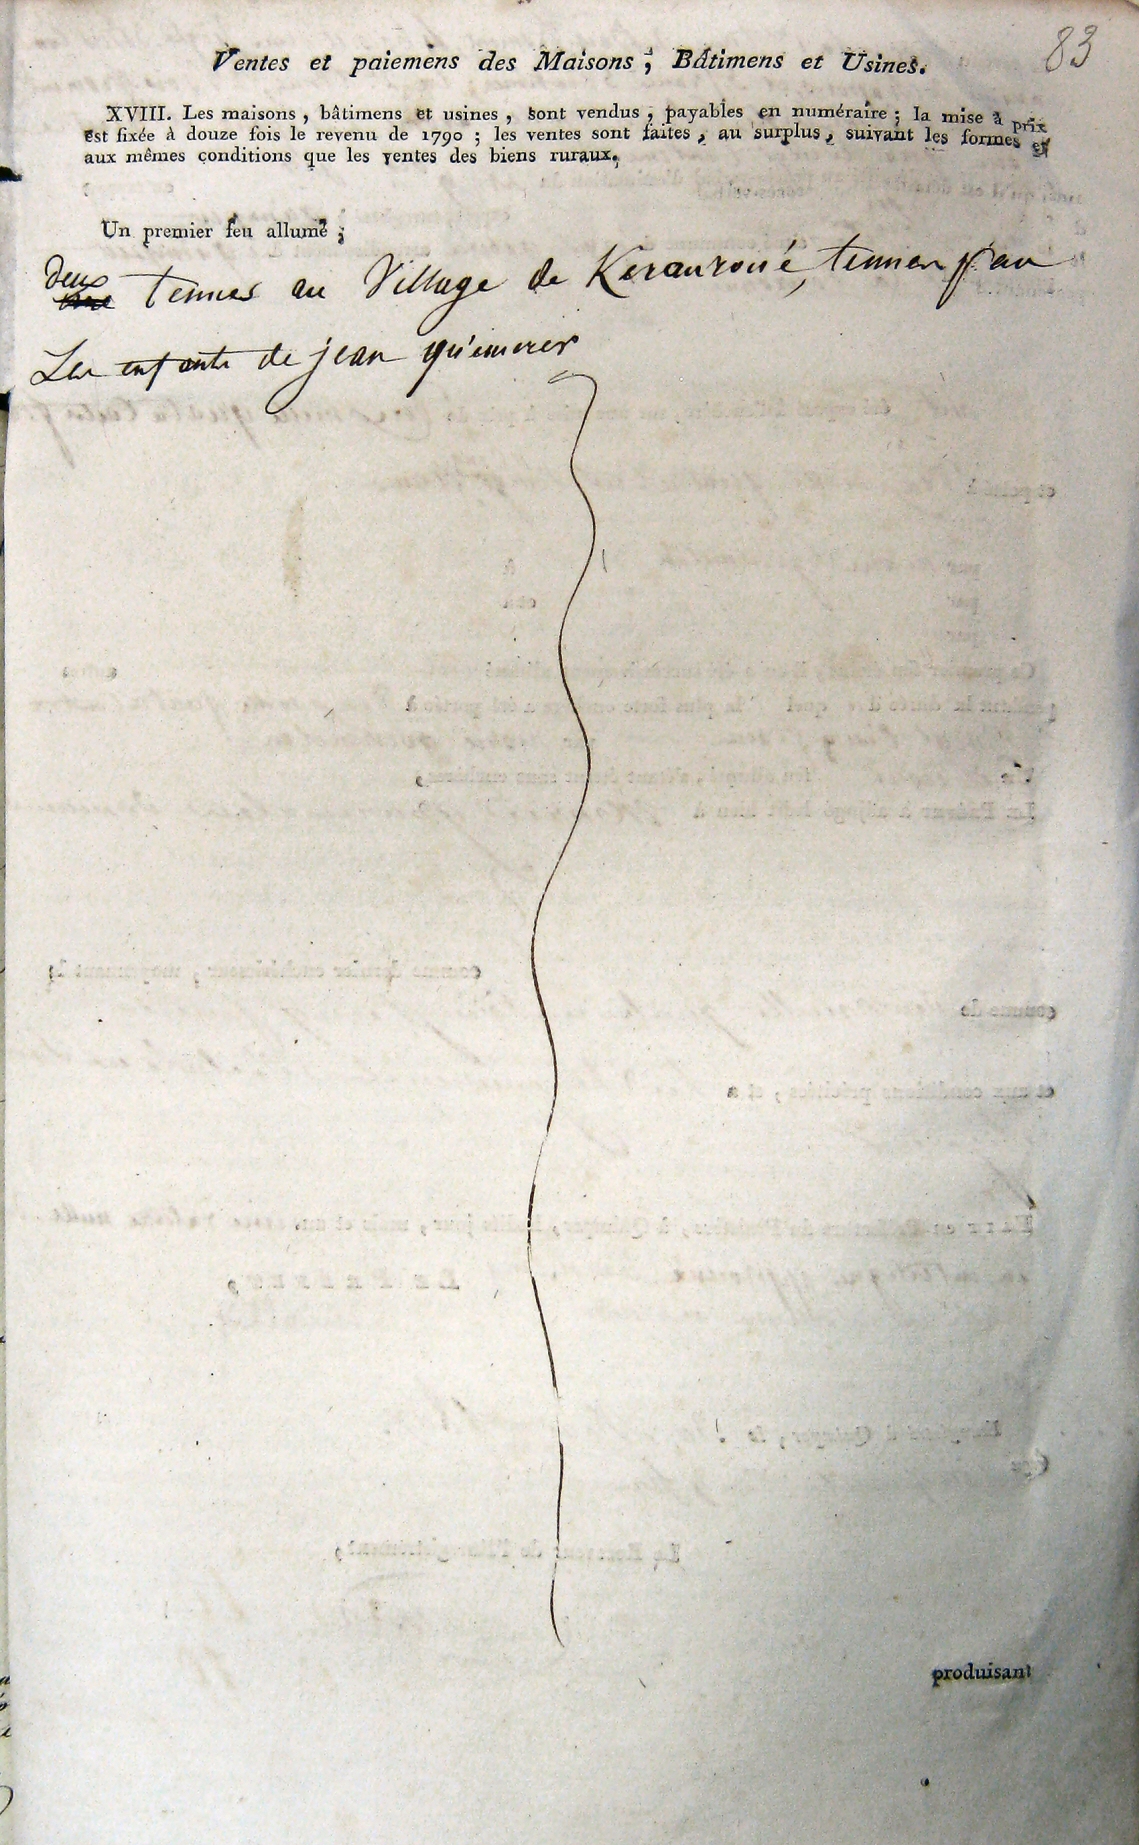 83
Ventes et paiemens des Maisons, Bâtimens et Usines.
XVIII. Les maisons, bâtimens et usines, sont vendus, payables en numéraire ; la mise à prix
est fixée à douze fois le revenu de 1790 ; les ventes sont faites, au surplus, suivant les formes et
aux mêmes conditions que les ventes des biens ruraux.
Un premier feu allumé ;
deux Tenues au Village de Kerauroué, tenues par
Les enfants de jean quémerer
produisant